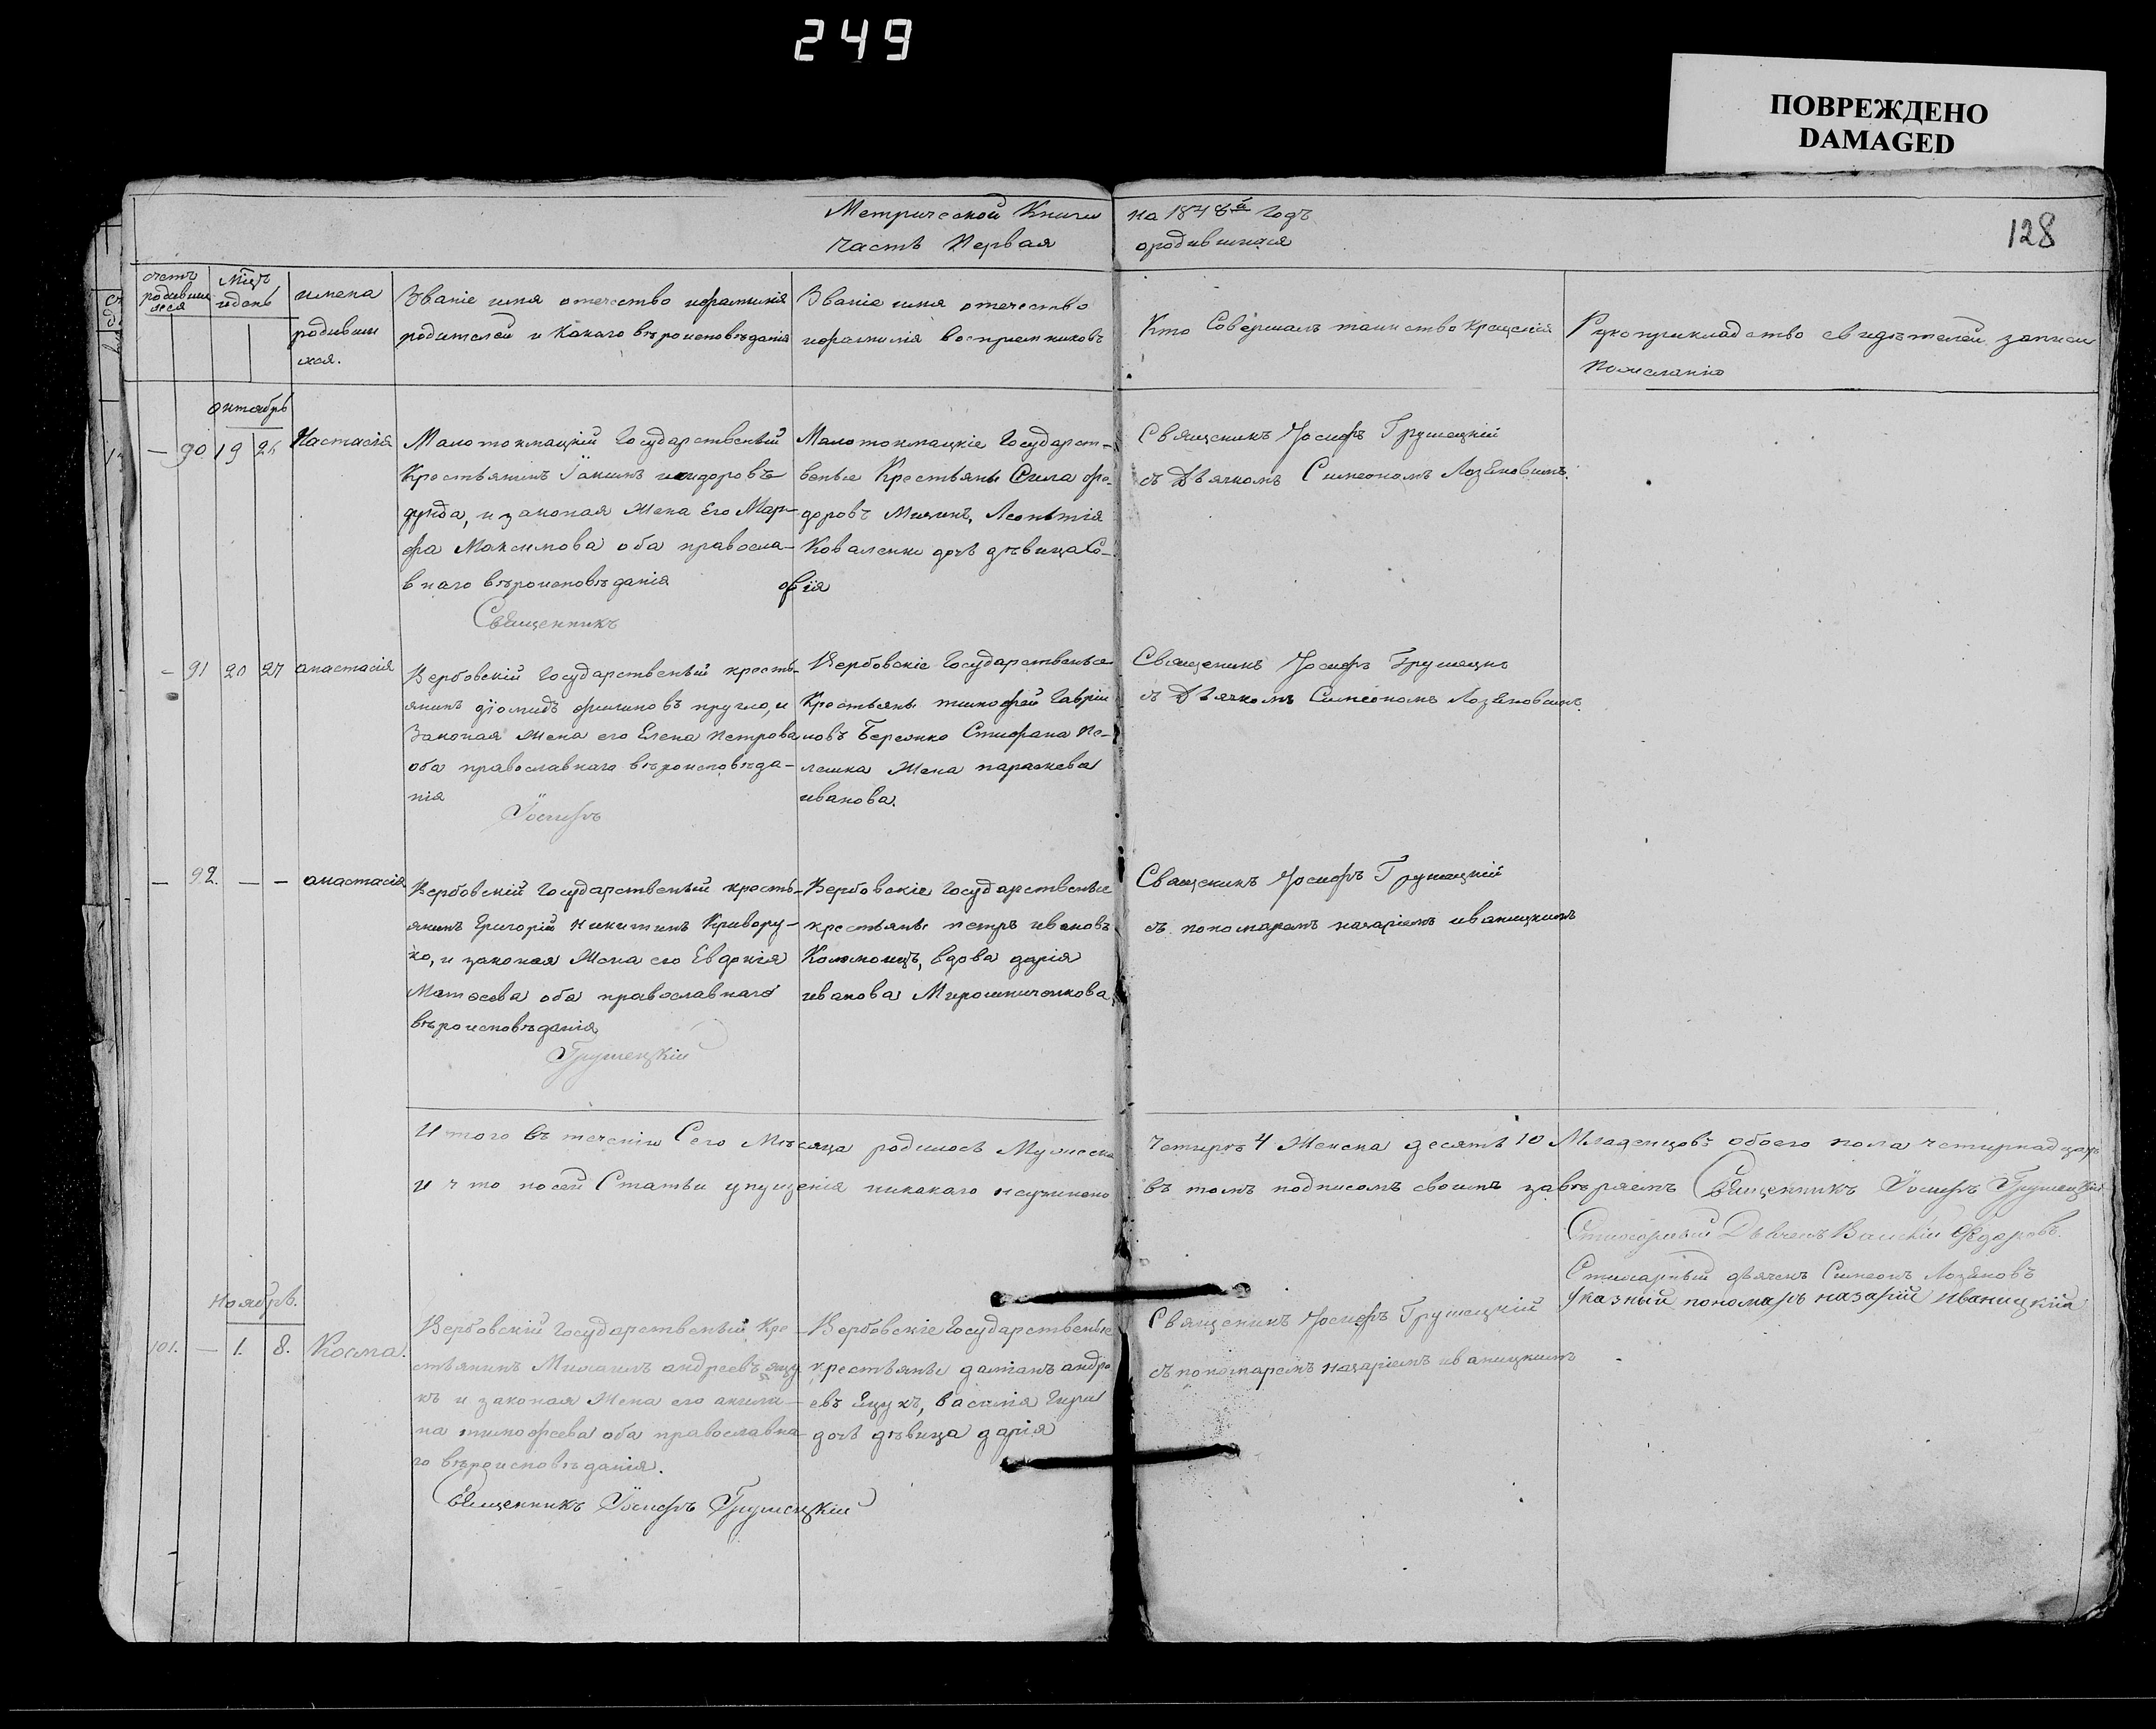 249
ПОВРЕЖДЕНО
DAMAGED
128
Метрической Книги на 1848й Годъ
Часть Первая о родившихся
счетъ родившихся
Мцъ и день
имена
родивши
хся.
Званіе имя отечество ифамилія
родителей и Какаго вѣроисповѣданія
Званіе имя отечество
ифамилія воспріемниковъ
Кто Совершалъ таинство крещенія
Рукоприкладство свидѣтелей записи
Пожеланію
октябрь
— 90 19 26 Настасія
Малотокмацкій Государственый
Крестьянинъ Іакимъ исидоровъ
и законая Жена Его Мар-
фа Максимова оба правосла-
внаго вѣроисповѣданія
Малотокмацкіе Государст-
веные Крестьяны Сила фе-
доровъ Леонтія
Коваленка дочь дѣвица Со-
фія
Священикъ Іосифъ Грушецкій
съ Дѣячкомъ Симеономъ Лозановымъ.
Священникъ
— 91 20 27 анастасія
Вербовскій Государственый кресть-
янинъ діомидъ филиповъ кругло, и
Законая Жена его Елена Петрова
оба православнаго вѣроисповѣда-
нія
Вербовскіе Государственые
Крестьяны тимофей Гаврии
ловъ Бережко Стифана Пе-
лешка Жена параскева
иванова.
Священикъ Іосифъ Грушецкі
съ Дѣячкомъ Симеономъ Лозановымъ.
Іосифъ
— 92. — — анастасія
Вербовскій Государственый кресть-
янинъ Григорій Никитинъ Кривору-
ко, и законая Жена его Евдокія
Матвеева оба православнаго
вѣроисповѣданія
Вербовскіе Государственые
крестьяны петръ ивановъ
Коломоецъ, вдова дарія
иванова Мирошниченкова
Священикъ Іосифъ Грушецкій
съ пономаремъ назаріемъ иваницкимъ
Грушецкій
Итого въ теченіи Сего Мѣсяца родилось Мужеска Четыре 4 Женска десять 10 Младенцовъ обоего пола четырнадцать
И что посей Статьи упущенія никакаго неучинено въ томъ подписомъ своимъ завѣряемъ Священникъ Іосифъ Грушецкій
Стихарный Дьячекъ Федоровъ.
Стихарный дѣячекъ Симеонъ Лозановъ
Указный пономарь назарій Иваницкій
Ноябрь.
101. — 1. 8. Косма.
Вербовскій Государственый Кре-
стьянинъ Михаилъ андреевъ яцу
къ и законая Жена его акили-
на тимофеева оба православна-
го вѣроисповѣданія.
Вербовскіе Государственые
крестьяны даміанъ андре
евъ Яцукъ, василія Гиря
дочь дѣвица дарія
Священикъ Іосифъ Грушецкій
съ пономаремъ назаріемъ иваницкимъ
Священникъ Іосифъ Грушецкій